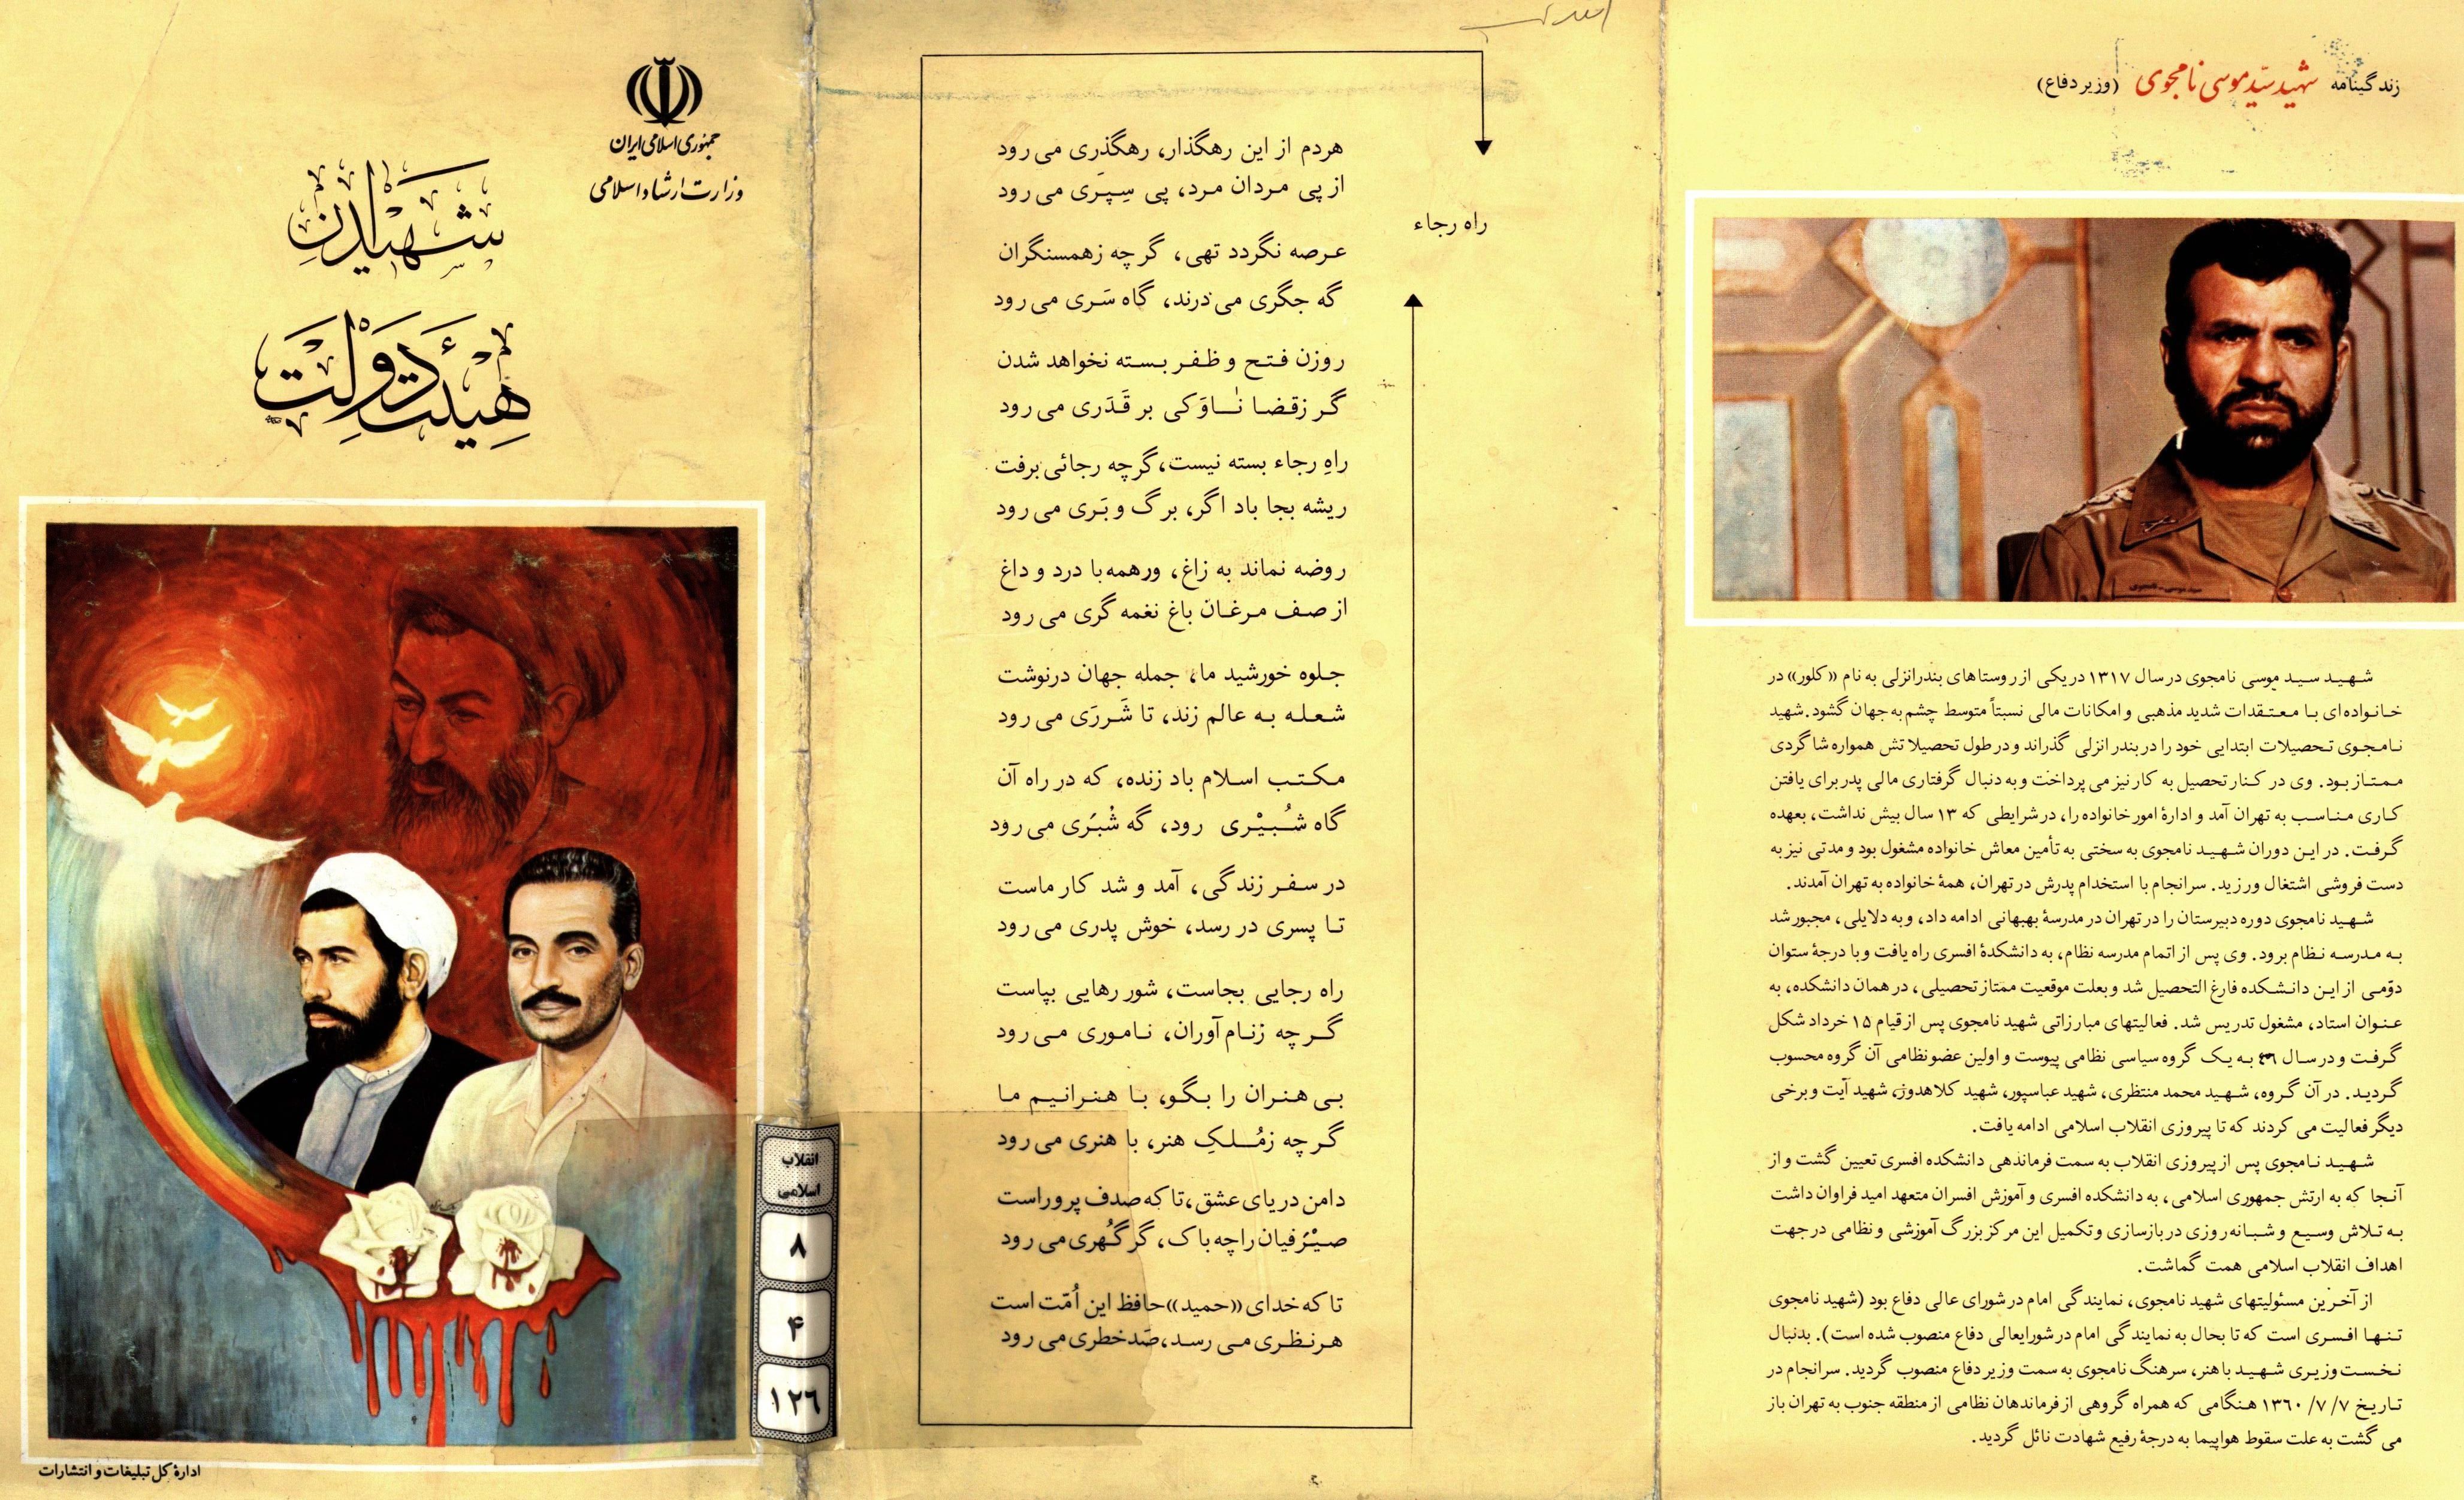 جمهوری اسلامی ایران
وزارت ارشاد اسلامی
شهیدان
هیئت دولت
ادارهٔ کل تبلیغات و انتشارات
انقلاب
اسلامی
۸
۴
۱۲۶
راه رجاء
هردم از این رهگذار، رهگذری می رود
از پی مردان مرد، پی سِپَری می رود
عرصه نگردد تهی، گرچه زهمسنگران
گه جگری می درند، گاه سَری می رود
روزن فتح و ظفر بسته نخواهد شدن
گر زقضا ناوَکی بر قَدَری می رود
راهِ رجاء بسته نیست، گرچه رجائی برفت
ریشه بجا باد اگر، برگ و بَری می رود
روضه نماند به زاغ، ورهمه با درد و داغ
از صف مرغان باغ نغمه گری می رود
جلوه خورشید ما، جمله جهان درنوشت
شعله به عالم زند، تا شَررَی می رود
مکتب اسلام باد زنده، که در راه آن
گاه شُبیْری رود، گه شْبَری می رود
در سفر زندگی، آمد و شد کار ماست
تا پسری در رسد، خوش پدری می رود
راه رجایی بجاست، شور رهایی بپاست
گرچه زنام آوران، ناموری می رود
بی هنران را بگو، با هنرانیم ما
گرچه زمُلکِ هنر، با هنری می رود
دامن دریای عشق، تا که صدف پرور است
صیْرَفیان را چه باک، گر گُهری می رود
تا که خدای «حمید» حافظ این اُمّت است
هر نظری می رسد، صَد خطری می رود
زندگینامه شهید سیّد موسی نامجوی (وزیر دفاع)
شهید سید موسی نامجوی در سال ۱۳۱۷ در یکی از روستاهای بندرانزلی به نام «کلور» در
خانواده ای با معتقدات شدید مذهبی و امکانات مالی نسبتاً متوسط چشم به جهان گشود. شهید
نامجوی تحصیلات ابتدایی خود را در بندر انزلی گذراند و در طول تحصیلاتش همواره شاگردی
ممتاز بود. وی در کنار تحصیل به کار نیز می پرداخت و به دنبال گرفتاری مالی پدر برای یافتن
کاری مناسب به تهران آمد و ادارهٔ امور خانواده را، در شرایطی که ۱۳ سال بیش نداشت، بعهده
گرفت. در این دوران شهید نامجوی به سختی به تأمین معاش خانواده مشغول بود و مدتی نیز به
دست فروشی اشتغال ورزید. سرانجام با استخدام پدرش در تهران، همهٔ خانواده به تهران آمدند.
شهید نامجوی دوره دبیرستان را در تهران در مدرسهٔ بهبهانی ادامه داد، و به دلایلی، مجبور شد
به مدرسه نظام برود. وی پس از اتمام مدرسه نظام، به دانشکدهٔ افسری راه یافت و با درجهٔ ستوان
دوّمی از این دانشکده فارغ التحصیل شد و بعلت موقعیت ممتاز تحصیلی، در همان دانشکده، به
عنوان استاد، مشغول تدریس شد. فعالیتهای مبارزاتی شهید نامجوی پس از قیام ۱۵ خرداد شکل
گرفت و در سال ۴۶ به یک گروه سیاسی نظامی پیوست و اولین عضو نظامی آن گروه محسوب
گردید. در آن گروه، شهید محمد منتظری، شهید عباسپور، شهید کلاهدوز، شهید آیت و برخی
دیگر فعالیت می کردند که تا پیروزی انقلاب اسلامی ادامه یافت.
شهید نامجوی پس از پیروزی انقلاب به سمت فرماندهی دانشکده افسری تعیین گشت و از
آنجا که به ارتش جمهوری اسلامی، به دانشکده افسری و آموزش افسران متعهد امید فراوان داشت
به تلاش وسیع و شبانه روزی در بازسازی و تکمیل این مرکز بزرگ آموزشی و نظامی در جهت
اهداف انقلاب اسلامی همت گماشت.
از آخرین مسئولیتهای شهید نامجوی، نمایندگی امام در شورای عالی دفاع بود (شهید نامجوی
تنها افسری است که تا بحال به نمایندگی امام در شورایعالی دفاع منصوب شده است). بدنبال
نخست وزیری شهید باهنر، سرهنگ نامجوی به سمت وزیر دفاع منصوب گردید. سرانجام در
تاریخ ۷/۷/۱۳۶۰ هنگامی که همراه گروهی از فرماندهان نظامی از منطقه جنوب به تهران باز
می گشت به علت سقوط هواپیما به درجهٔ رفیع شهادت نائل گردید.